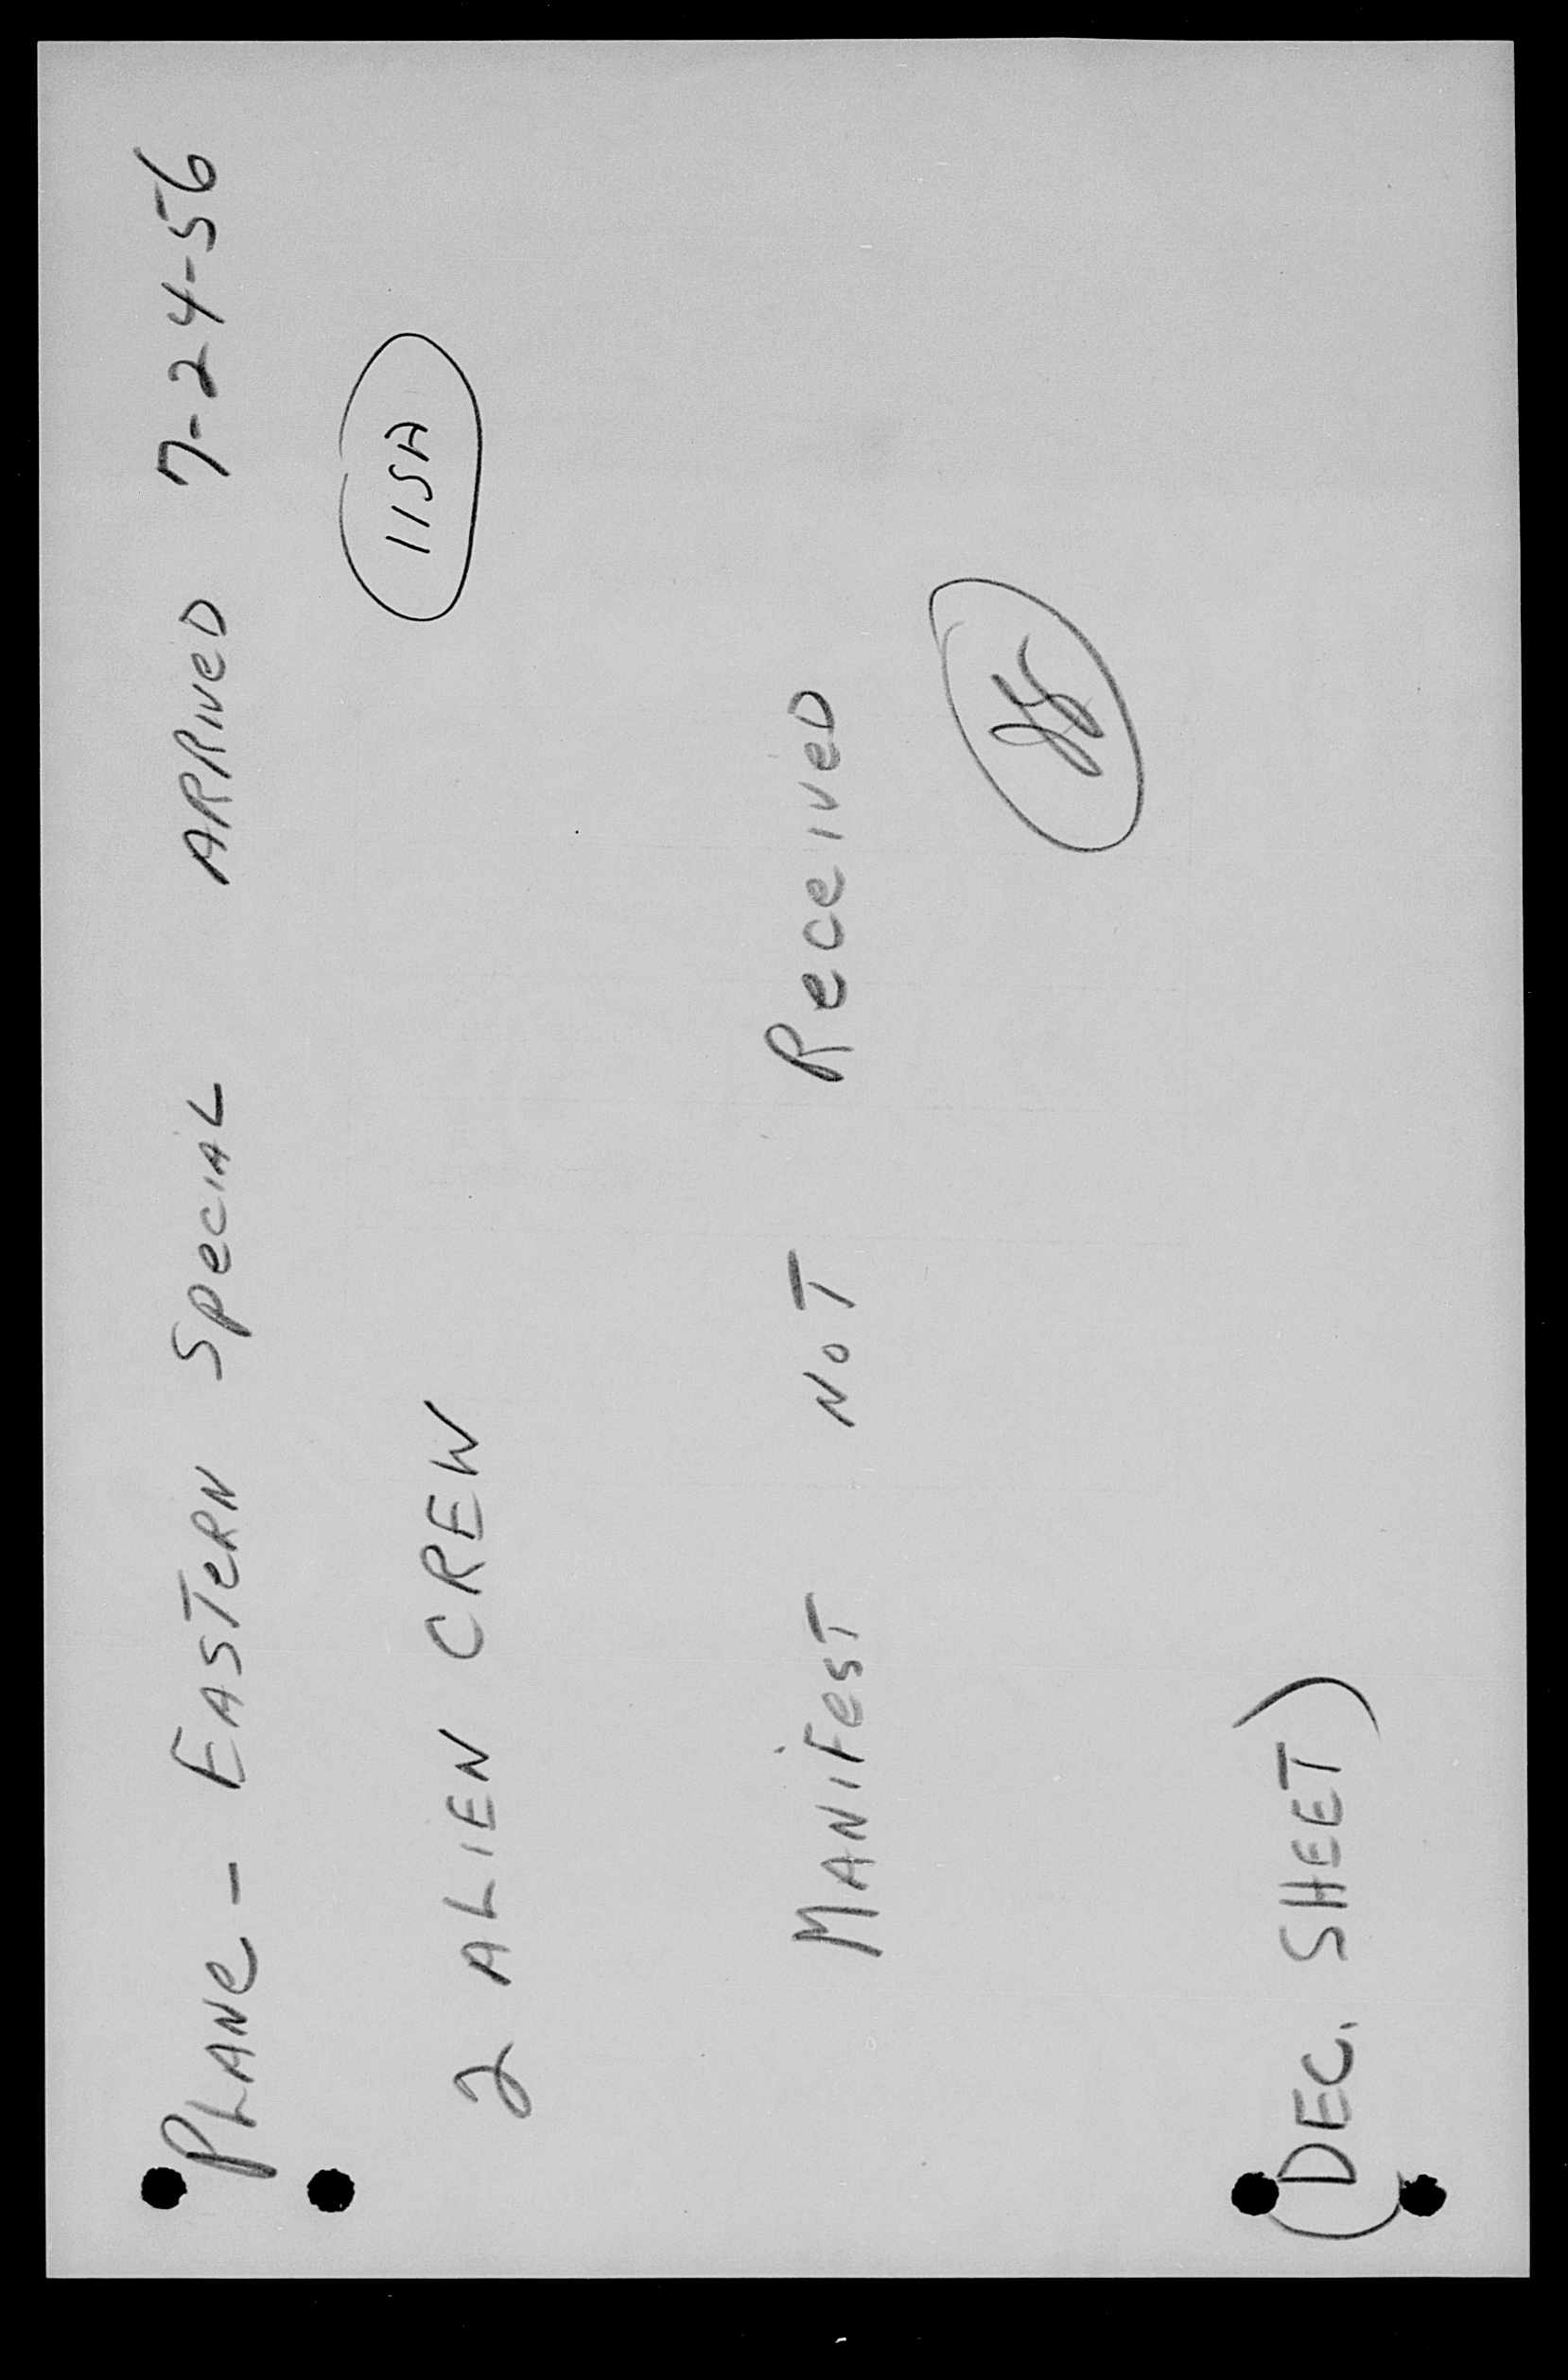 PLANe - EASTeRN SPeCiAL ARRIVeD 7-24-56
115A
2 ALIEN CREW
MANiFesT NoT ReceiveD
(DEC. SHEET)